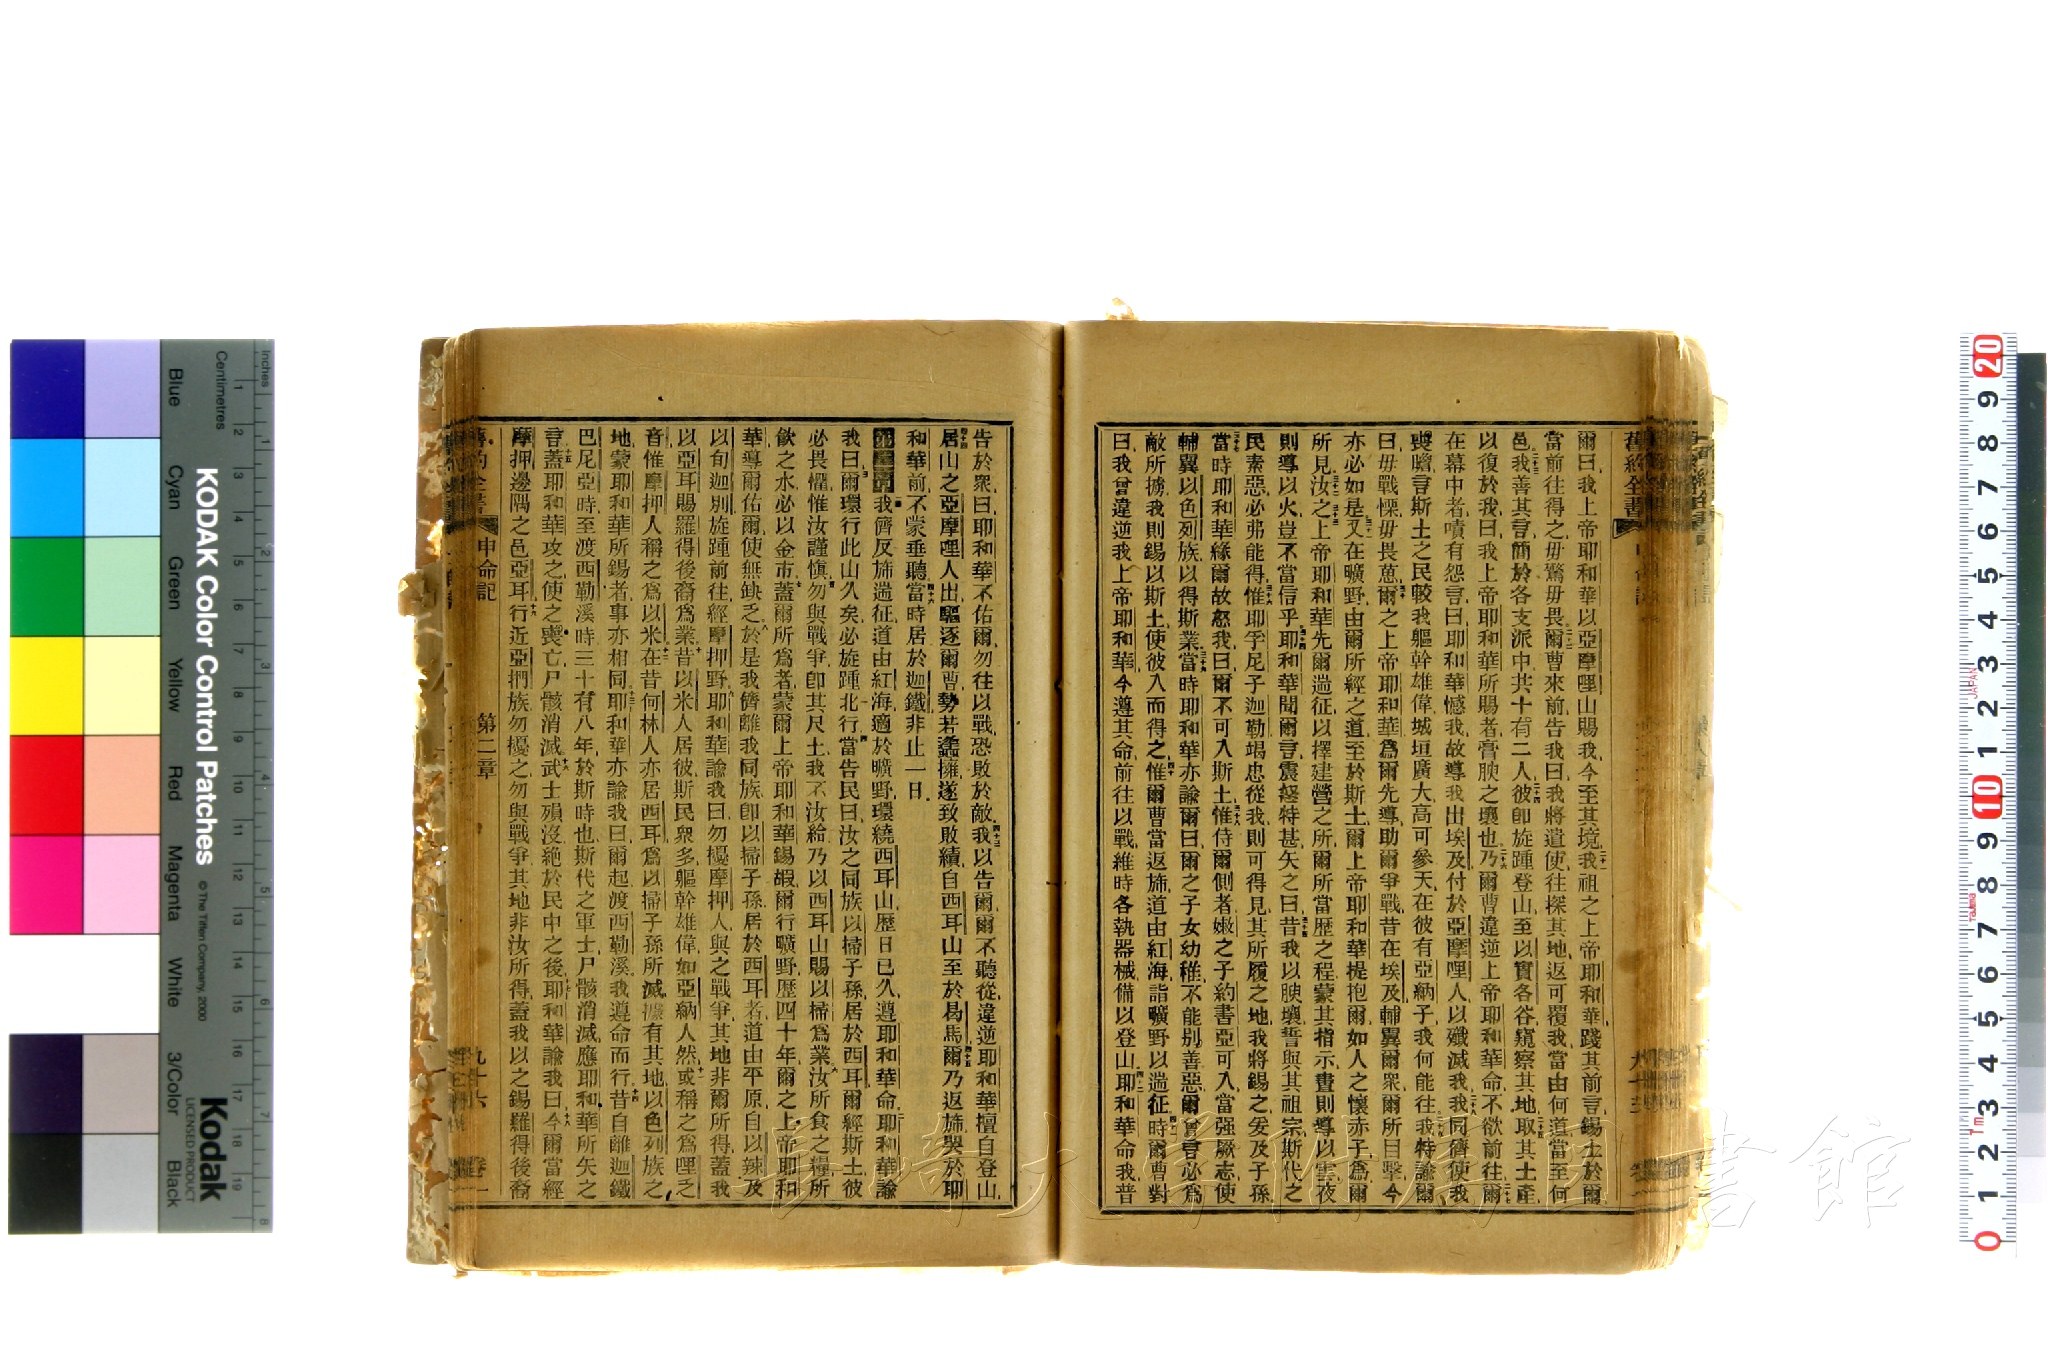 舊約全書
爾曰我上帝耶和華以亞摩哩山賜我今至其境我祖之上帝耶和華踐其前言錫土於爾
當前往得之毋驚毋畏爾曹來前告我曰我將遣使往探其地返可覆我當由何道當至何
邑我善其言簡於各支派中共十有二人彼卽旋踵登山至以實各谷窺察其地取其土產
以復於我曰我上帝耶和華所賜者膏腴之壤也乃爾曹違逆上帝耶和華命不欲前往爾
在幕中者嘖有怨言曰耶和華憾我故導我出埃及付於亞摩哩人以殲滅我我同儕使我
喪瞻言斯土之民較我軀幹雄偉城垣廣大高可參天在彼有亞納子我何能往我特諭爾
曰毋戰慄毋畏葸爾之上帝耶和華爲爾先導助爾爭戰昔在埃及輔翼爾衆爾所目擊今
亦必如是又在曠野由爾所經之道至於斯土爾上帝耶和華提抱爾如人之懷赤子爲爾
所見汝之上帝耶和華先爾遄征以擇建營之所爾所當歷之程蒙其指示晝則導以雲夜
則導以火豈不當信乎耶和華聞爾言震怒特甚矢之曰昔我以腴壤誓與其祖宗斯代之
民素惡必弗能得惟耶孚尼子迦勒竭忠從我則可得見其所履之地我將錫之爰及子孫
當時耶和華緣爾故怒我曰爾不可入斯土惟侍爾側者嫩之子約書亞可入當强厥志使
輔翼以色列族以得斯業當時耶和華亦諭爾曰爾之子女幼稚不能別善惡爾曾言必爲
敵所擄我則錫以斯土使彼入而得之惟爾曹當返旆道由紅海詣曠野以遄征時爾曹對
曰我曾違逆我上帝耶和華今遵其命前往以戰維時各執器械備以登山耶和華命我普
告於衆曰耶和華不佑爾勿往以戰恐敗於敵我以告爾爾不聽從違逆耶和華擅自登山
居山之亞摩哩人出驅逐爾曹勢若蜂擁遂致敗績自西耳山至於曷馬爾乃返旆哭於耶
和華前不蒙垂聽當時居於迦鐵非止一日
第二章我儕反旆遄征道由紅海適於曠野環繞西耳山歷日已久遵耶和華命耶和華諭
我曰爾環行此山久矣必旋踵北行當告民曰汝之同族以掃子孫居於西耳爾經斯土彼
必畏懼惟汝謹愼勿與戰爭卽其尺土我不汝給乃以西耳山賜以掃爲業汝所食之糧所
飲之水必以金市蓋爾所爲者蒙爾上帝耶和華錫嘏爾行曠野歷四十年爾之上帝耶和
華導爾佑爾使無缺乏於是我儕離我同族卽以掃子孫居於西耳者道由平原自以辣及
以旬迦別旋踵前往經摩押野耶和華諭我曰勿擾摩押人與之戰爭其地非爾所得蓋我
以亞耳賜羅得後裔爲業昔以米人居彼斯民衆多軀幹雄偉如亞納人然或稱之爲哩乏
音惟摩押人稱之爲以米在昔何林人亦居西耳爲以掃子孫所滅遂有其地以色列族之
地蒙耶和華所錫者事亦相同耶和華亦諭我曰爾起渡西勒溪我遵命而行昔自離迦鐵
巴尼亞時至渡西勒溪時三十有八年於斯時也斯代之軍士尸骸消滅應耶和華所矢之
言蓋耶和華攻之使之喪亡尸骸消滅武士殞沒絶於民中之後耶和華諭我曰今爾當經
摩押邊隅之邑亞耳行近亞捫族勿擾之勿與戰爭其地非汝所得蓋我以之錫羅得後裔
舊約全書 申命記 第二章 九十六 卷一
長崎大学附属図書館
KODAK Color Control Patches
© The Tiffen Company, 2000
Kodak
LICENSED PRODUCT
Inches
Centimetres
Blue
Cyan
Green
Yellow
Red
Magenta
White
3/Color
Black
JAPAN